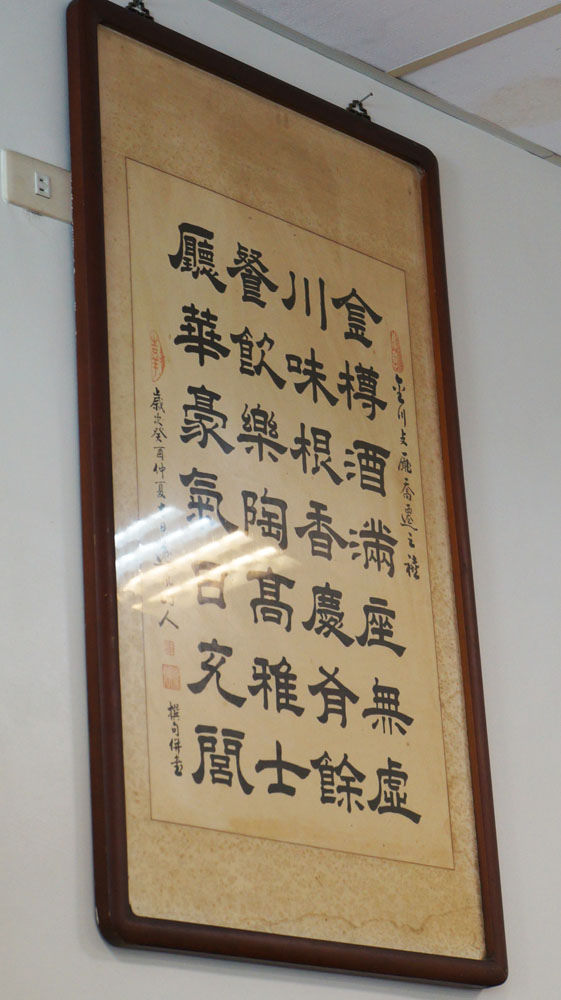 金川餐廳喬遷之禧
金樽酒滿座無虛
川味根香慶肴餘
餐飲樂陶高雅士
廳華豪氣日充閭
歲次癸酉仲夏 人 撰句併書